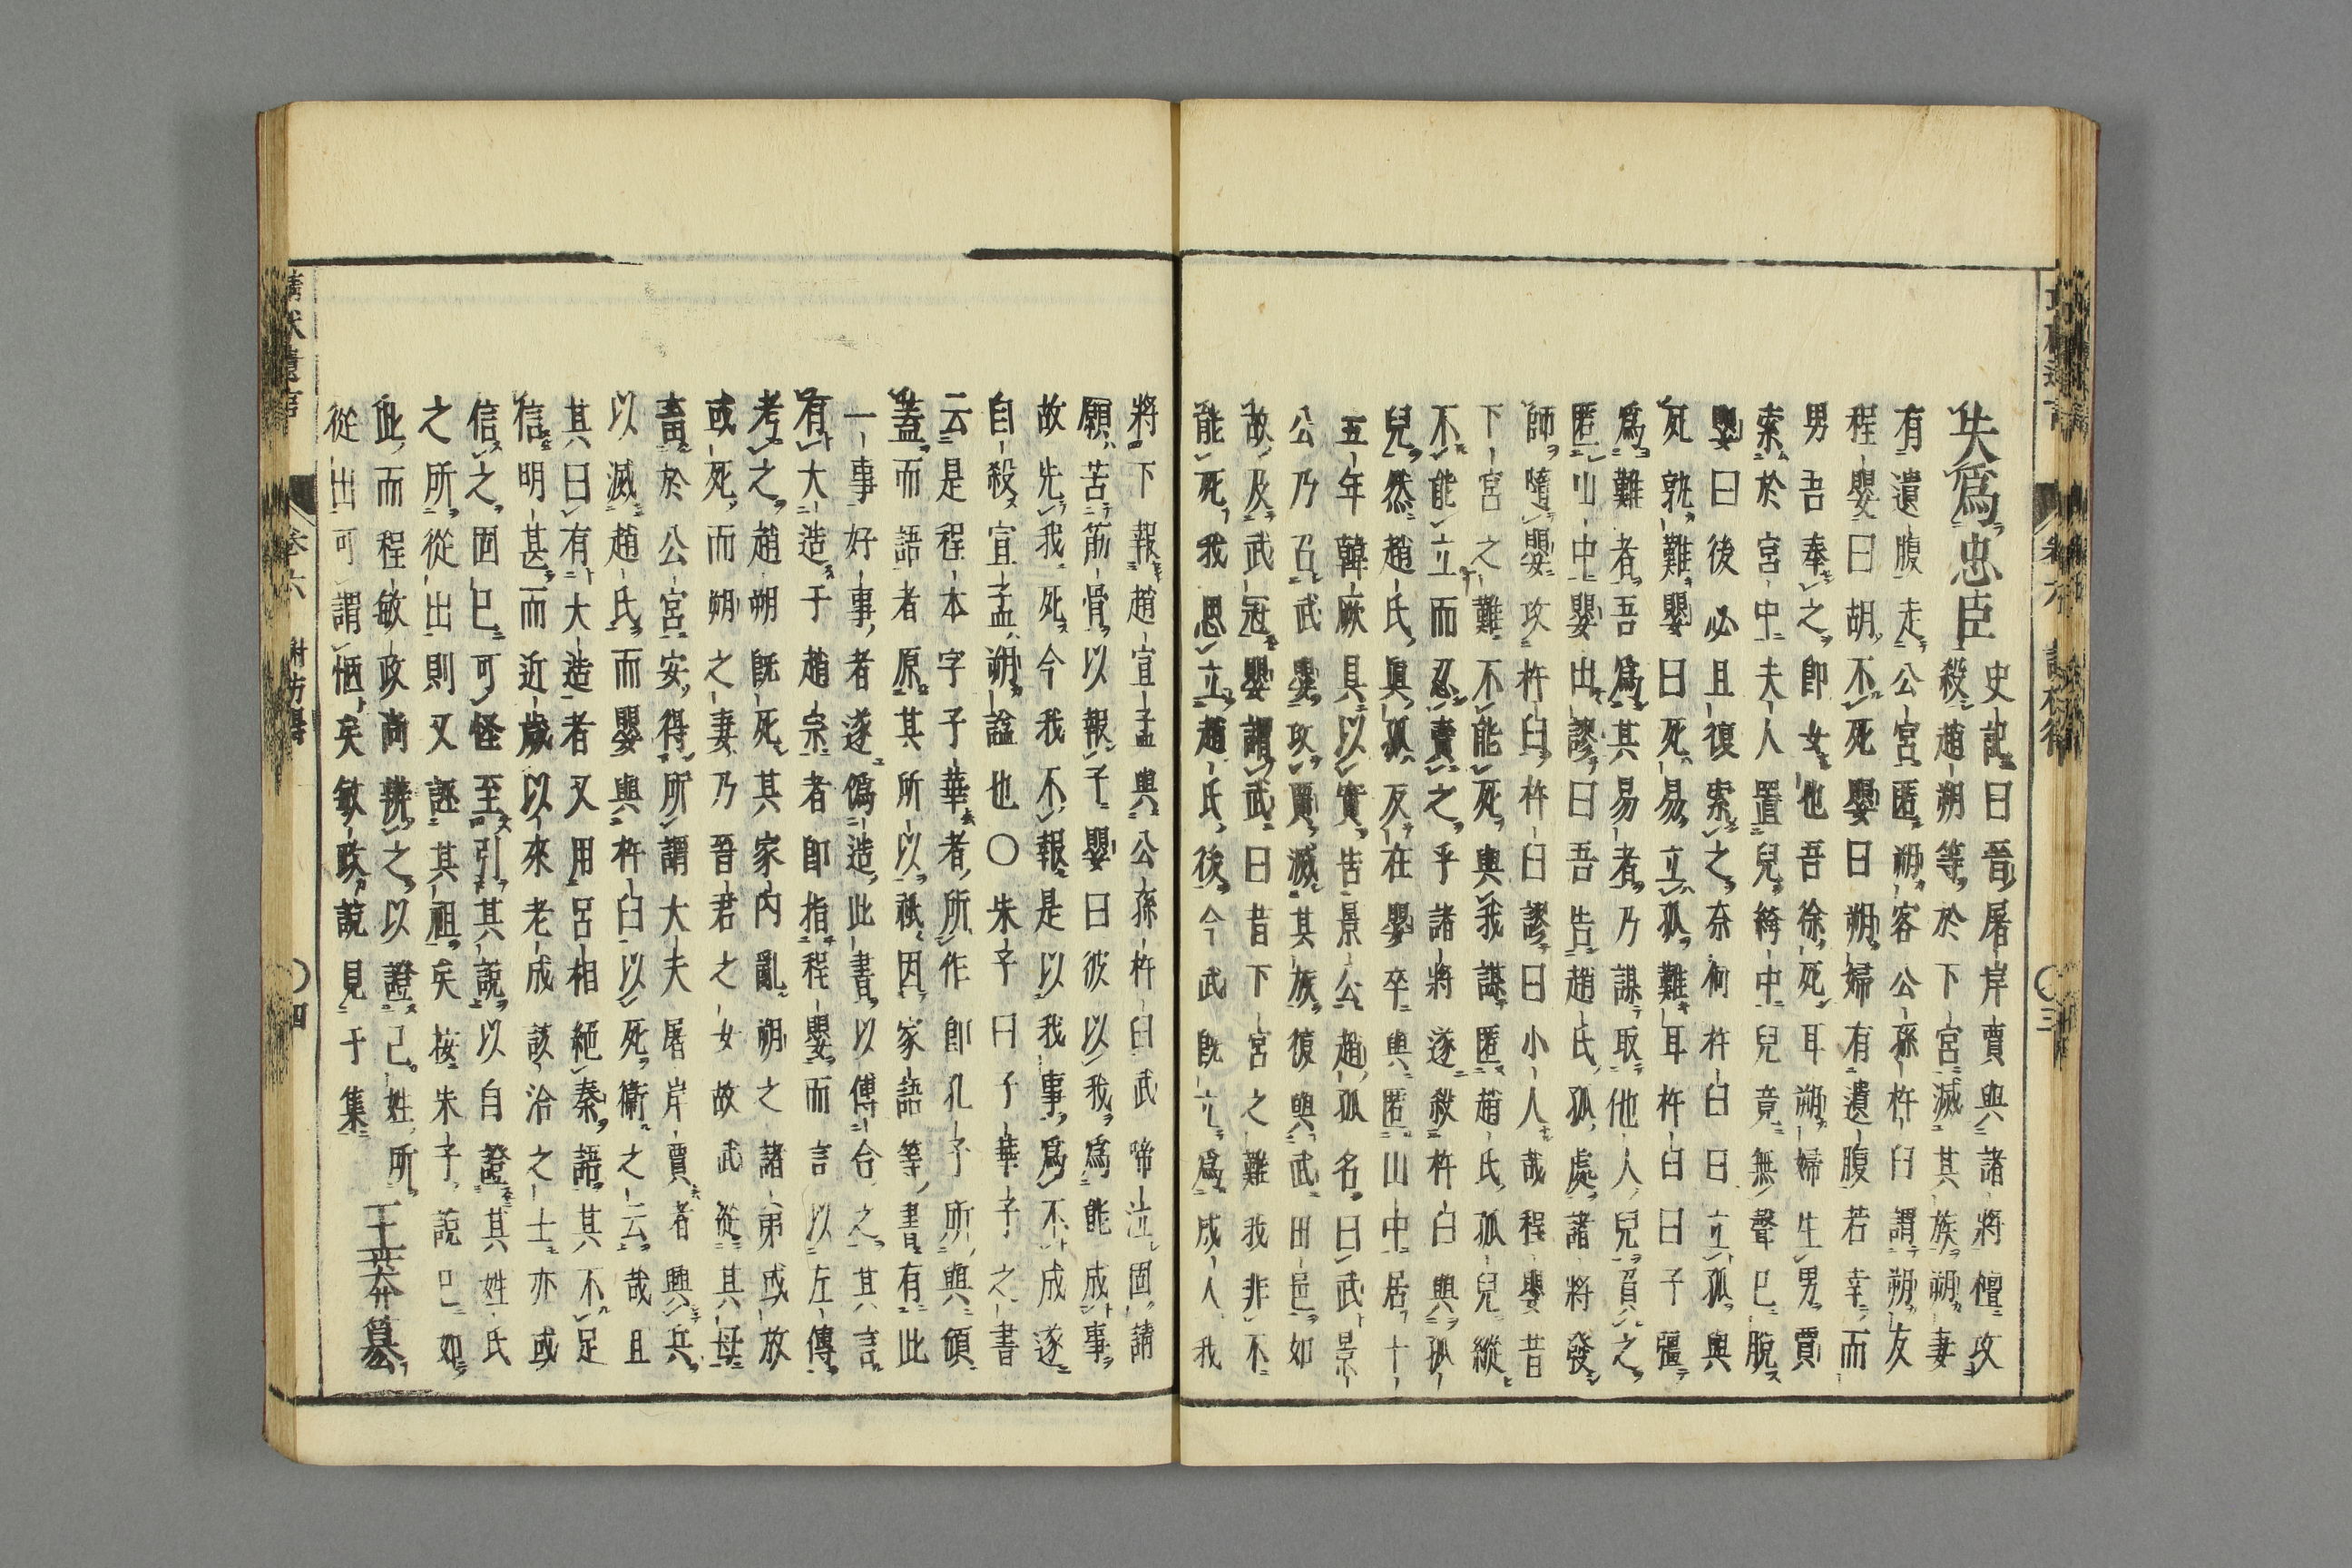 失爲忠臣
史記曰晉屠岸賈與諸將檀攻
殺趙朔等於下宮滅其族朔妻
有遺腹走公宮匿朔客公孫杵臼謂朔友
程嬰曰胡不死嬰曰朔婦有遺腹若幸而
男吾奉之卽女也吾徐死耳朔婦生男賈
索於宮中夫人置兒絝中兒竟無聲已脫
嬰曰後必且復索之奈何杵臼曰立孤與
死孰難嬰曰死易立孤難耳杵臼曰子彊
爲難者吾爲其易者乃謀取他人兒負之
匿山中嬰出謬曰吾告趙氏孤處諸將發
師隨嬰攻杵臼杵臼謬曰小人哉程嬰昔
下宮之難不能死與我謀匿趙氏孤兒縱
不能立而忍賣之乎諸將遂殺杵臼與孤
兒然趙氏眞孤反在嬰卒與匿山中居十
五年韓厥具以實告景公趙孤名曰武景
公乃召武嬰攻賈滅其族復與武田邑如
故及武冠嬰謂武曰昔下宮之難我非不
能死我思立趙氏後今武旣立爲成人我
將下報趙宣孟與公孫杵臼武啼泣固請
願苦筋骨以報子嬰曰彼以我爲能成事
故先我死今我不報是以我事爲不成遂
自殺宣孟朔謚也○朱子曰子華子之書
云是程本字子華者所作卽孔子所與傾
蓋而語者原其所以祇因家語等書有此
一事好事者遂僞造此書以傅合之其言
有大造于趙宗者卽指程嬰而言以左傳
考之趙朔旣死其家內亂朔之諸弟或放
或死而朔之妻乃晉君之女故武從其母
畜於公宮安得所謂大夫屠岸賈者興兵
以滅趙氏而嬰與杵臼以死衛之云哉且
其曰有大造者又用呂相絕秦語其不足
信明甚而近歲以來老成該洽之士亦或
信之固已可怪至引其說以自證其姓氏
之所從出則又誣其祖矣按朱子說已如
此而程敏政尚辨之以證己姓所
從出可謂恓矣敏政說見于集
王莽篡
卷六
四